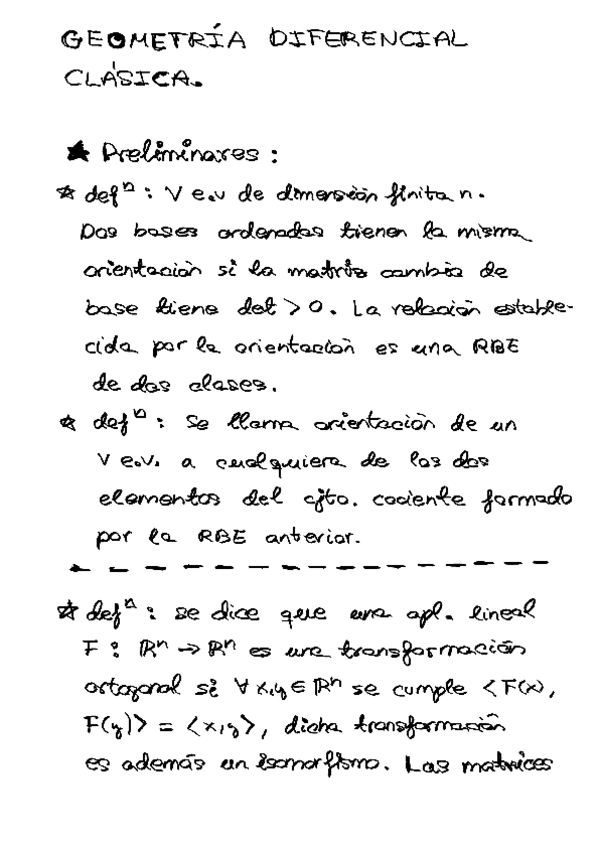 GEOMETRÍA DIFERENCIAL
CLÁSICA.
★ Preliminares:
☆ defⁿ: V e.v de dimensión finita n.
Dos bases ordenadas tienen la misma
orientación si la matriz cambio de
base tiene det > 0. La relación estable-
cida por la orientación es una RBE
de dos clases.
☆ defⁿ: Se llama orientación de un
V e.v. a cualquiera de los dos
elementos del cjto. cociente formado
por la RBE anterior.
☆ defⁿ: se dice que una apl. lineal
F: ℝⁿ → ℝⁿ es una transformación
ortogonal si ∀ x,y ∈ ℝⁿ se cumple <F(x),
F(y)> = <x,y>, dicha transformación
es además un isomorfismo. Las matrices